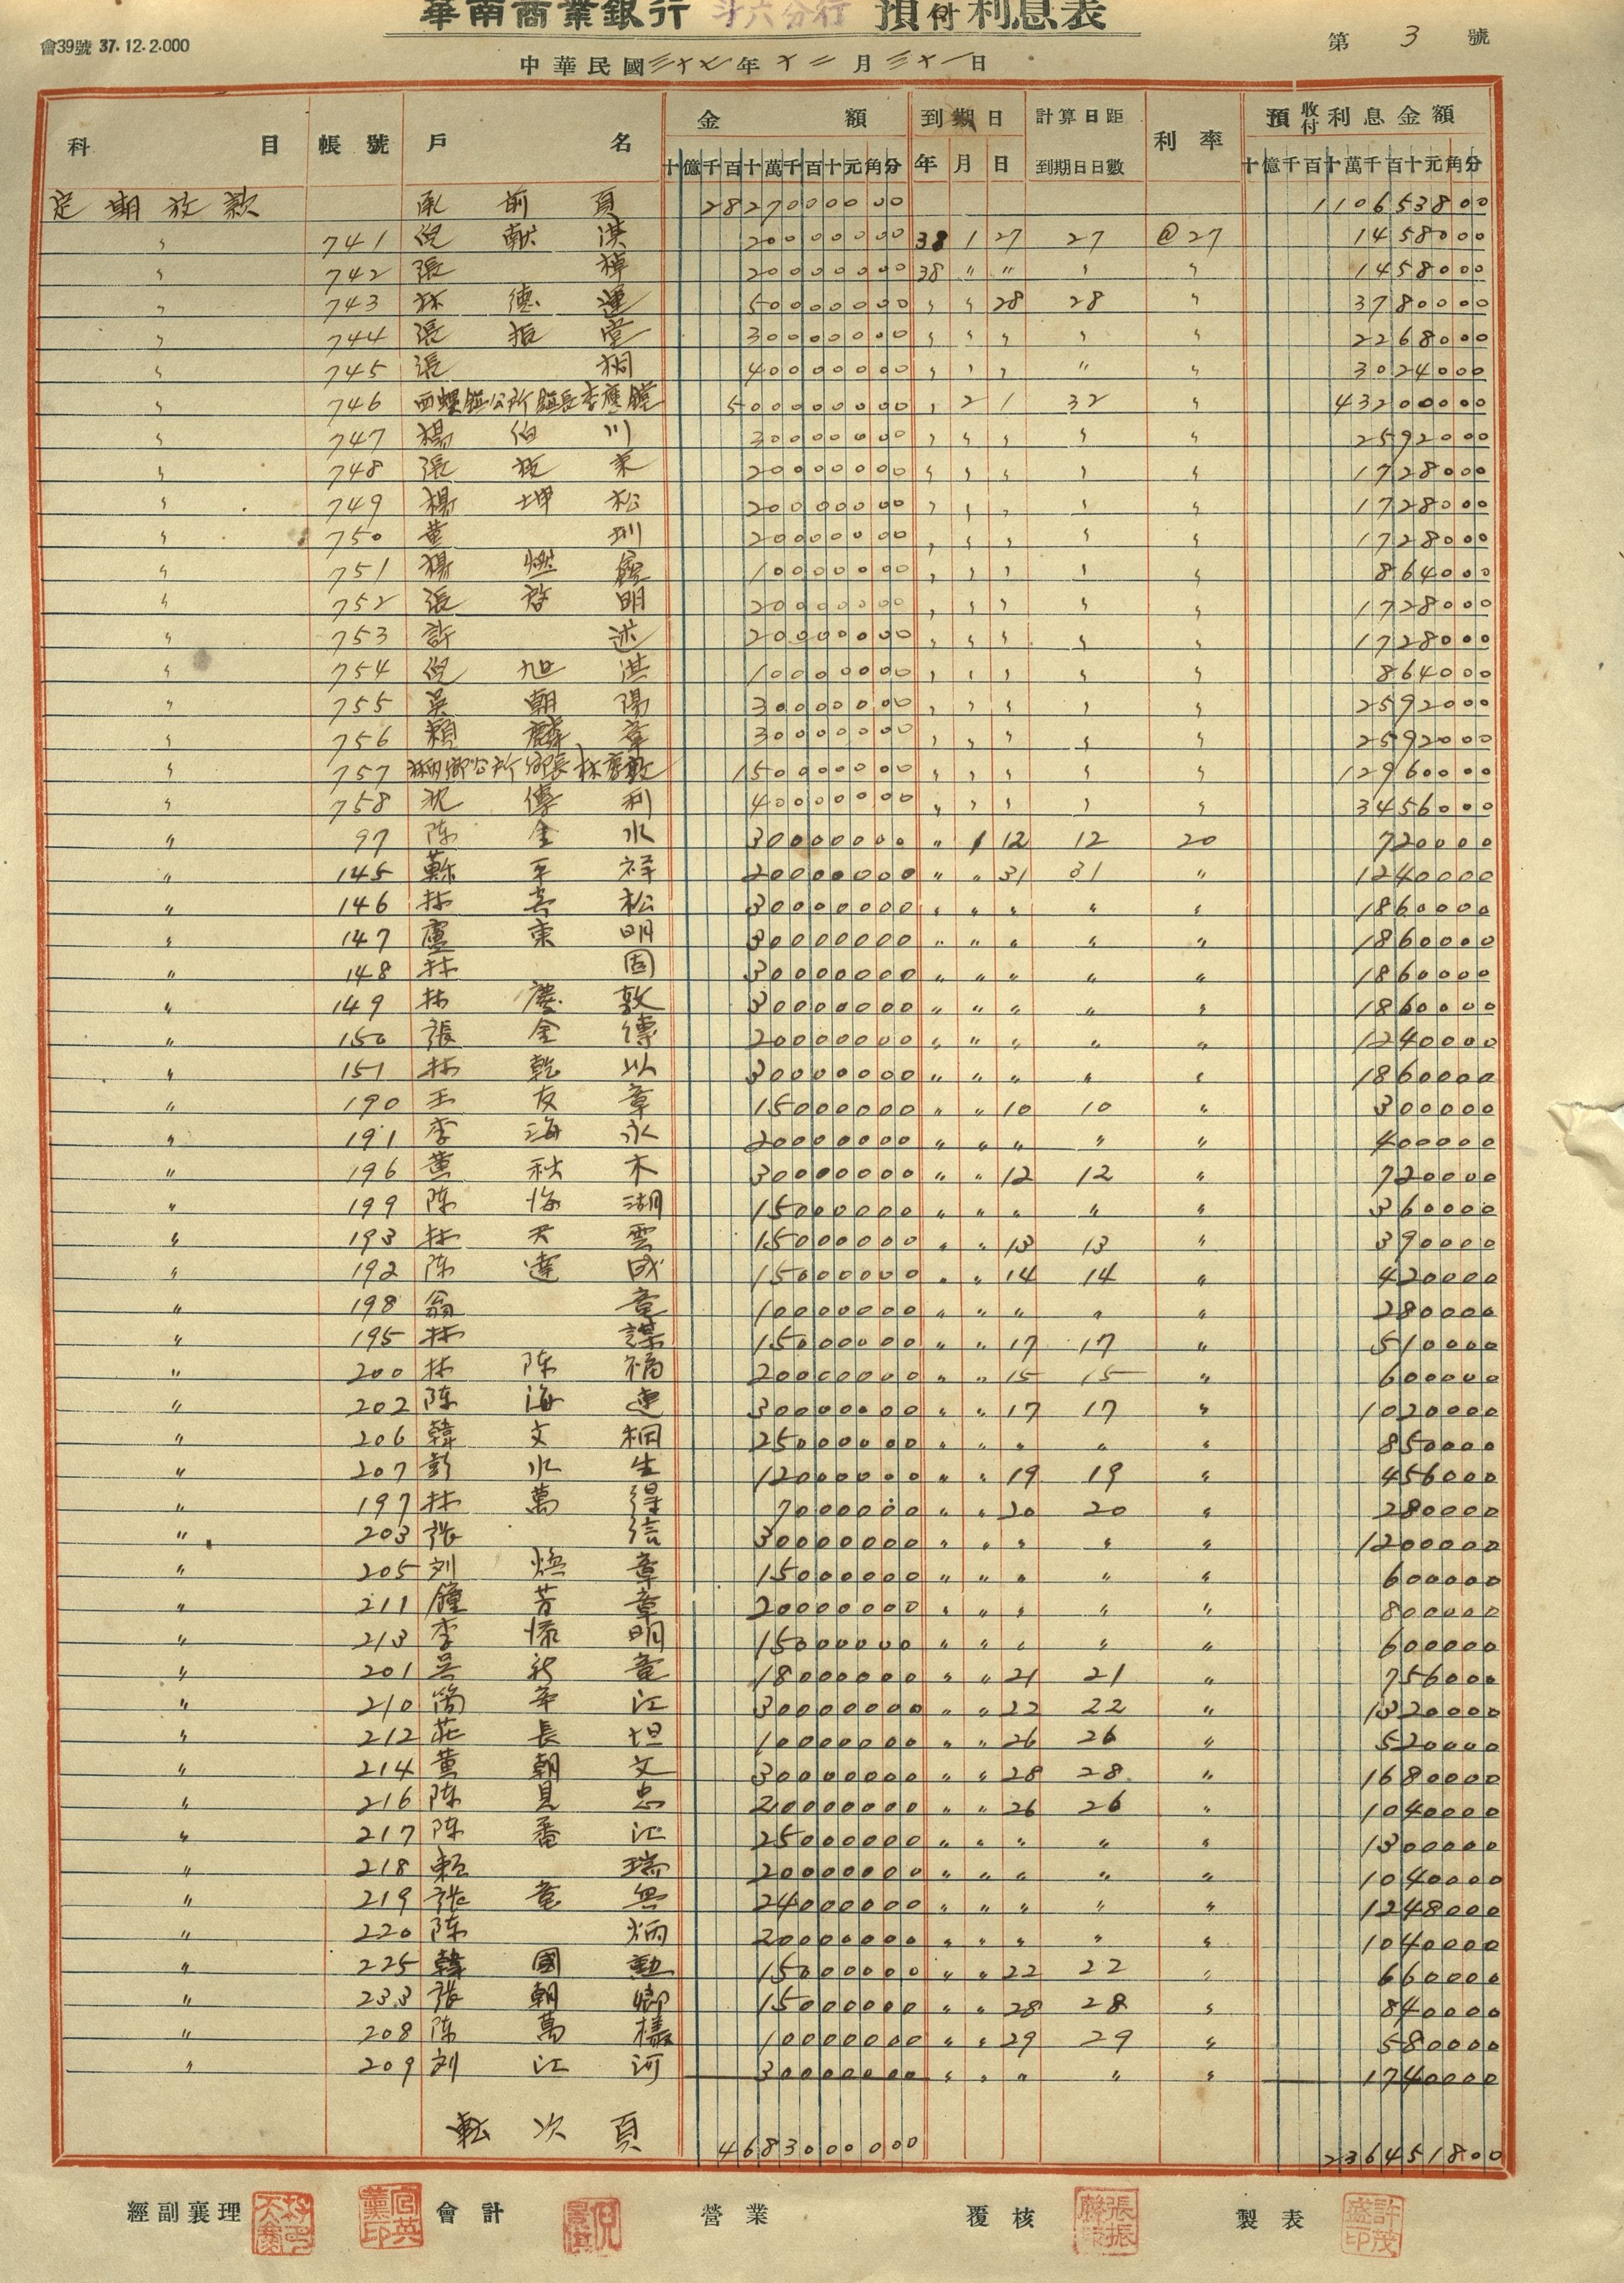 華南商業銀行 斗六分行 預付利息表
會39號 37.12.2.000
第 3 號
中華民國三十七年十二月三十一日
科目 帳號 戶名 金額 到期日 計算日距到期日日數 利率 預收付利息金額
十億千百十萬千百十元角分 年 月 日 十億千百十萬千百十元角分
定期放款 承前頁 2827000000 110653800
〃 741 倪献淇 20000000 38 1 27 27 @27 1458000
〃 742 張棹 20000000 38 〃 〃 〃 〃 1458000
〃 743 林德運 50000000 〃 〃 28 28 〃 3780000
〃 744 張振堂 30000000 〃 〃 〃 〃 〃 2268000
〃 745 張桐 40000000 〃 〃 〃 〃 〃 3024000
〃 746 西螺鎮公所鎮長李應鏜 500000000 〃 2 1 32 〃 43200000
〃 747 楊伯川 30000000 〃 〃 〃 〃 〃 2592000
〃 748 張 20000000 〃 〃 〃 〃 〃 1728000
〃 749 楊坤松 20000000 〃 〃 〃 〃 〃 1728000
〃 750 圳 20000000 〃 〃 〃 〃 〃 1728000
〃 751 楊 10000000 〃 〃 〃 〃 〃 864000
〃 752 張啓明 20000000 〃 〃 〃 〃 〃 1728000
〃 753 許述 20000000 〃 〃 〃 〃 〃 1728000
〃 754 倪旭淇 10000000 〃 〃 〃 〃 〃 864000
〃 755 吳朝陽 30000000 〃 〃 〃 〃 〃 2592000
〃 756 賴麟章 30000000 〃 〃 〃 〃 〃 2592000
〃 757 林內鄉公所鄉長林慶敦 150000000 〃 〃 〃 〃 〃 12960000
〃 758 沈傳利 40000000 〃 〃 〃 〃 〃 3456000
〃 97 陈金水 30000000 〃 1 12 12 20 720000
〃 145 蘇平祥 20000000 〃 〃 31 31 〃 1240000
〃 146 林崇松 30000000 〃 〃 〃 〃 〃 1860000
〃 147 盧東明 30000000 〃 〃 〃 〃 〃 1860000
〃 148 林固 30000000 〃 〃 〃 〃 〃 1860000
〃 149 林慶敦 30000000 〃 〃 〃 〃 〃 1860000
〃 150 張金傳 20000000 〃 〃 〃 〃 〃 1240000
〃 151 林乾以 30000000 〃 〃 〃 〃 〃 1860000
〃 190 王友章 15000000 〃 〃 10 10 〃 300000
〃 191 李海永 20000000 〃 〃 〃 〃 〃 400000
〃 196 黄秋木 30000000 〃 〃 12 12 〃 720000
〃 199 陈海湖 15000000 〃 〃 〃 〃 〃 360000
〃 193 林天雲 15000000 〃 〃 13 13 〃 390000
〃 192 陈達成 15000000 〃 〃 14 14 〃 420000
〃 198 翁章 10000000 〃 〃 〃 〃 〃 280000
〃 195 林謀 15000000 〃 〃 17 17 〃 510000
〃 200 林陈福 20000000 〃 〃 15 15 〃 600000
〃 202 陈海連 30000000 〃 〃 17 17 〃 1020000
〃 206 韓文桐 25000000 〃 〃 〃 〃 〃 850000
〃 207 彭水生 12000000 〃 〃 19 19 〃 456000
〃 197 林萬得 7000000 〃 〃 20 20 〃 280000
〃 203 張信 30000000 〃 〃 〃 〃 〃 1200000
〃 205 刘焕章 15000000 〃 〃 〃 〃 〃 600000
〃 211 鐘芳章 20000000 〃 〃 〃 〃 〃 800000
〃 213 李添明 15000000 〃 〃 〃 〃 〃 600000
〃 201 吳新章 18000000 〃 〃 21 21 〃 756000
〃 210 简平江 30000000 〃 〃 22 22 〃 1320000
〃 212 莊長坦 10000000 〃 〃 26 26 〃 520000
〃 214 黄朝文 30000000 〃 〃 28 28 〃 1680000
〃 216 陈見忠 20000000 〃 〃 26 26 〃 1040000
〃 217 陈番江 25000000 〃 〃 〃 〃 〃 1300000
〃 218 賴瑞 20000000 〃 〃 〃 〃 〃 1040000
〃 219 張 24000000 〃 〃 〃 〃 〃 1248000
〃 220 陈炳 20000000 〃 〃 〃 〃 〃 1040000
〃 225 韓國勳 15000000 〃 〃 22 22 〃 660000
〃 233 張朝卿 15000000 〃 〃 28 28 〃 840000
〃 208 陈萬樣 10000000 〃 〃 29 29 〃 580000
〃 209 刘江河 30000000 〃 〃 〃 〃 〃 1740000
転次頁 4683000000 236451800
經副襄理 會計 營業 覆核 張振聲印 製表 許茂盛印